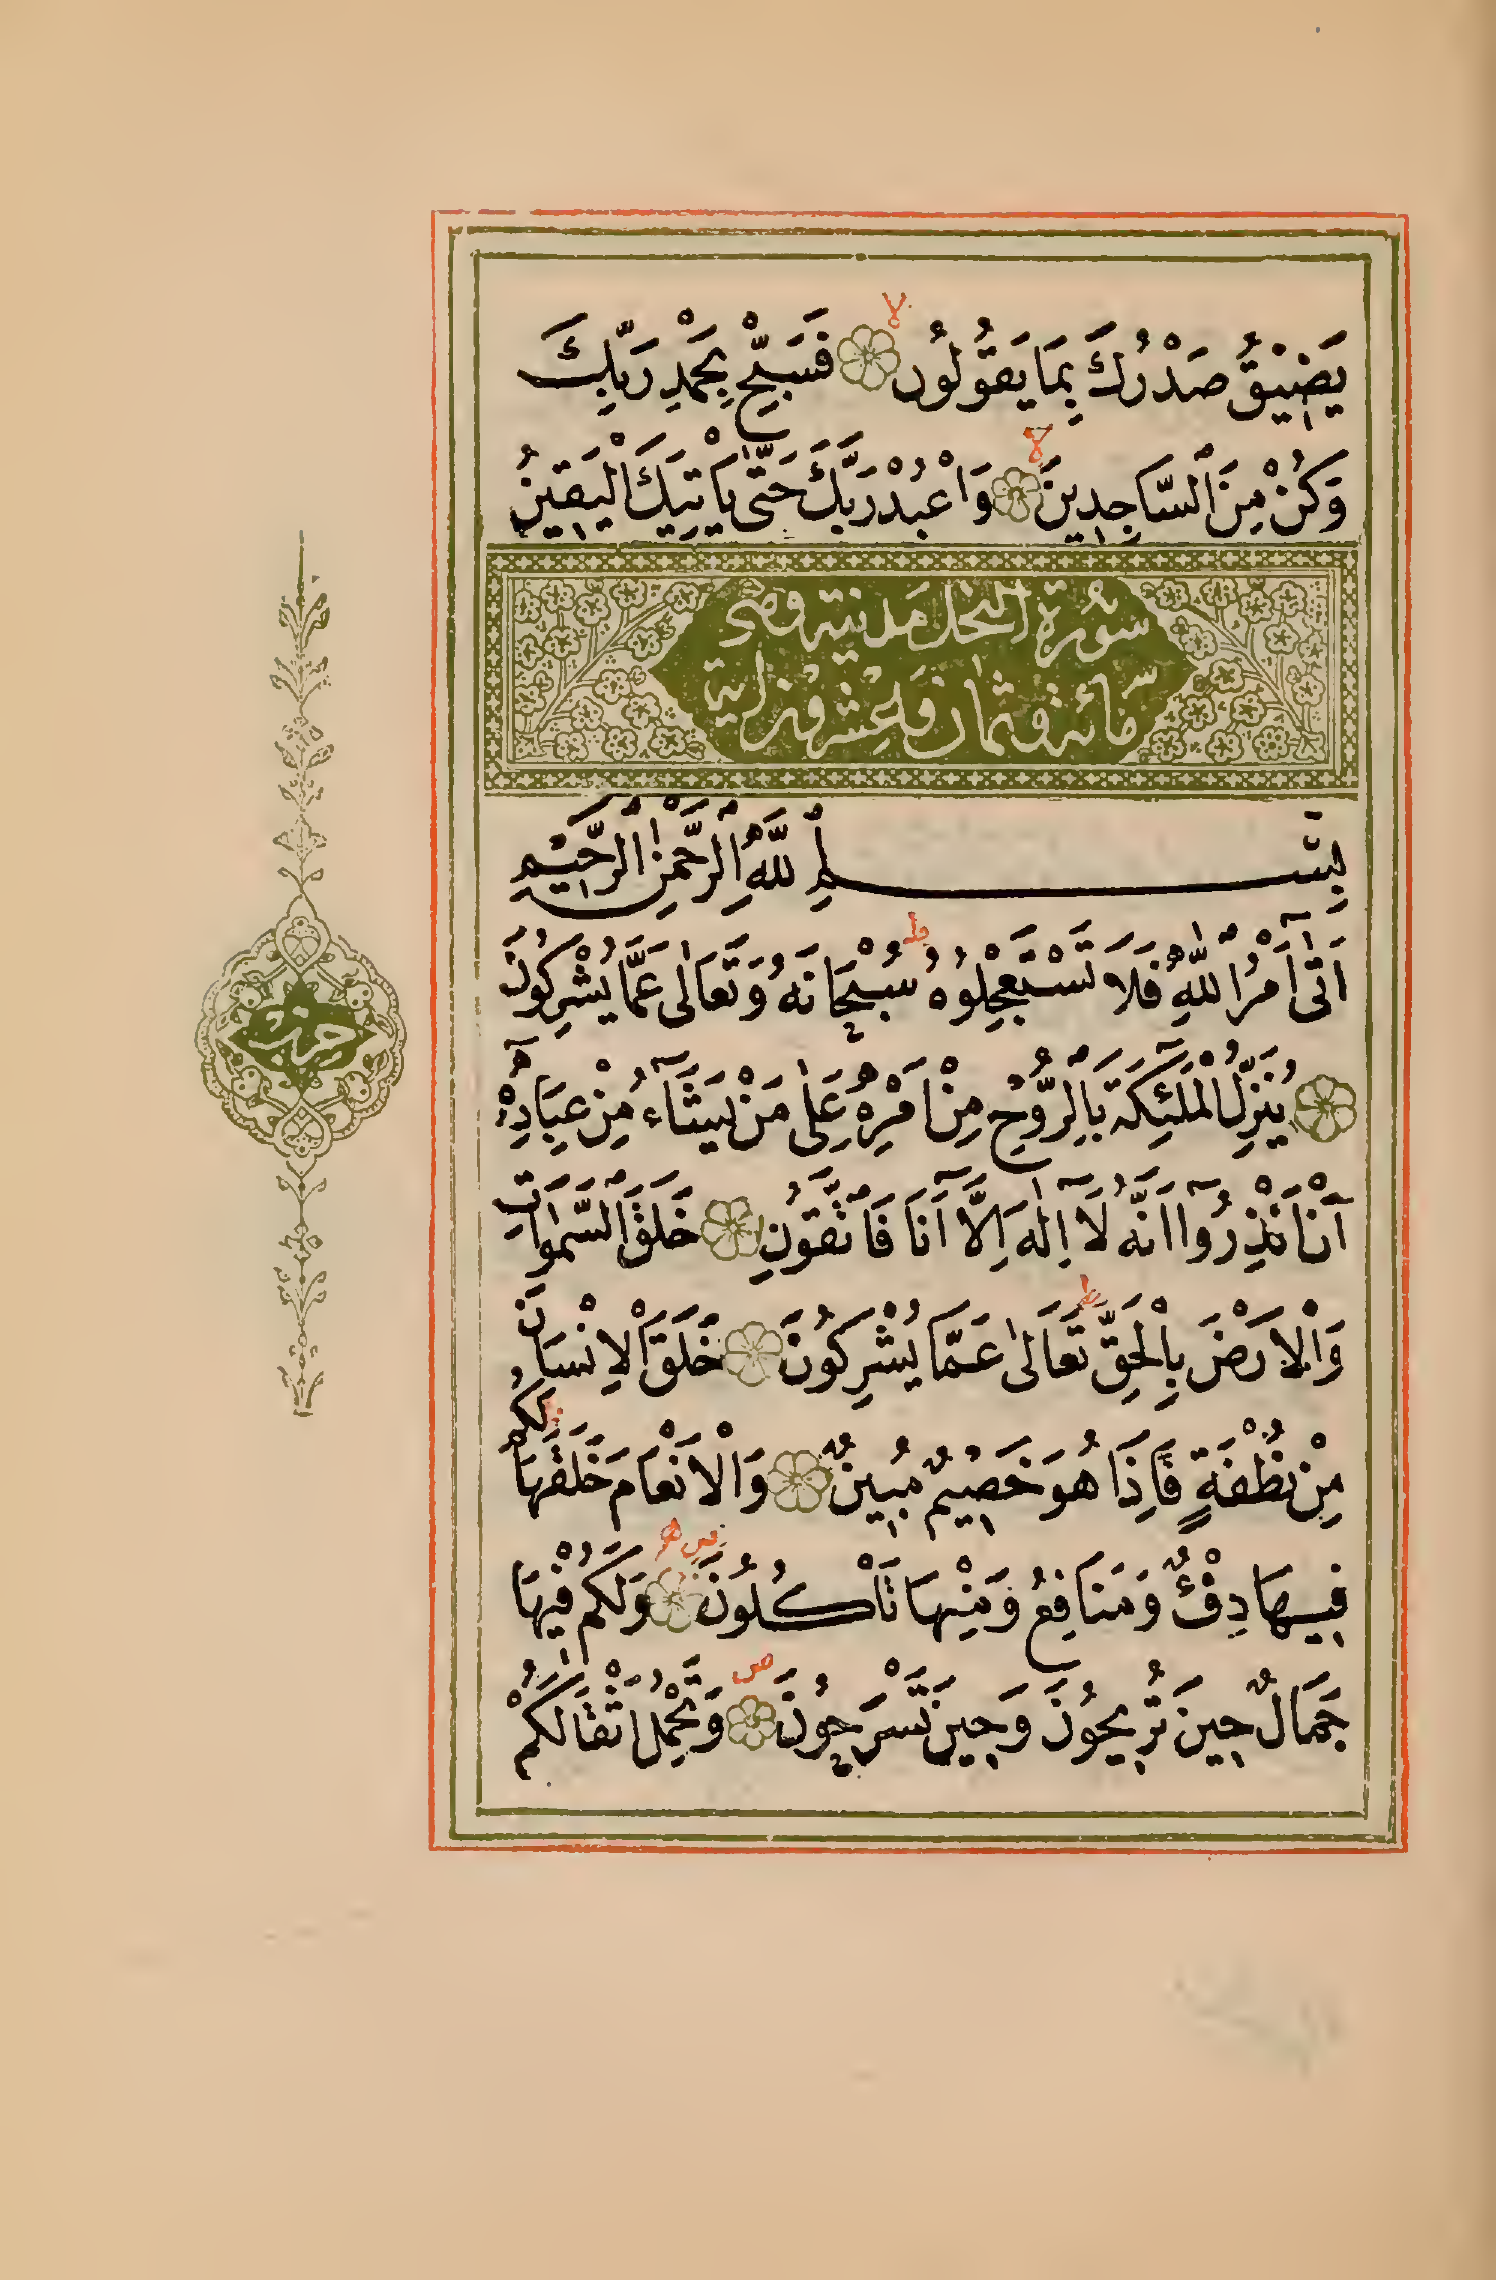 يَضِيقُ صَدْرُكَ بِمَا يَقُولُونَ ۙ فَسَبِّحْ بِحَمْدِ رَبِّكَ
وَكُنْ مِنَ ٱلسَّاجِدِينَ ۙ وَٱعْبُدْ رَبَّكَ حَتّٰى يَأْتِيَكَ الْيَقِينُ
سورة النحل مدنية وهى
مائة وثمان وعشرون آية
بِسْمِ ٱللّٰهِ ٱلرَّحْمٰنِ ٱلرَّحِيمِ
اَتٰٓى اَمْرُ ٱللّٰهِ فَلَا تَسْتَعْجِلُوهُ ط سُبْحَانَهُ وَتَعَالٰى عَمَّا يُشْرِكُونَ
يُنَزِّلُ الْمَلٰٓئِكَةَ بِٱلرُّوحِ مِنْ اَمْرِهِ عَلٰى مَنْ يَشَآءُ مِنْ عِبَادِهٓ
اَنْ اَنْذِرُوٓا اَنَّهُ لَٓا اِلٰهَ اِلَّٓا اَنَا فَاتَّقُونِ خَلَقَ ٱلسَّمٰوَاتِ
وَالْاَرْضَ بِالْحَقِّ ط تَعَالٰى عَمَّا يُشْرِكُونَ خَلَقَ الْاِنْسَانَ
مِنْ نُطْفَةٍ فَاِذَا هُوَ خَصِيمٌ مُبِينٌ وَالْاَنْعَامَ خَلَقَهَا لَكُمْ
فِيهَا دِفْءٌ وَمَنَافِعُ وَمِنْهَا تَأْكُلُونَ وَلَكُمْ فِيهَا
جَمَالٌ حِينَ تُرِيحُونَ وَحِينَ تَسْرَحُونَ ص وَتَحْمِلُ اَثْقَالَكُمْ